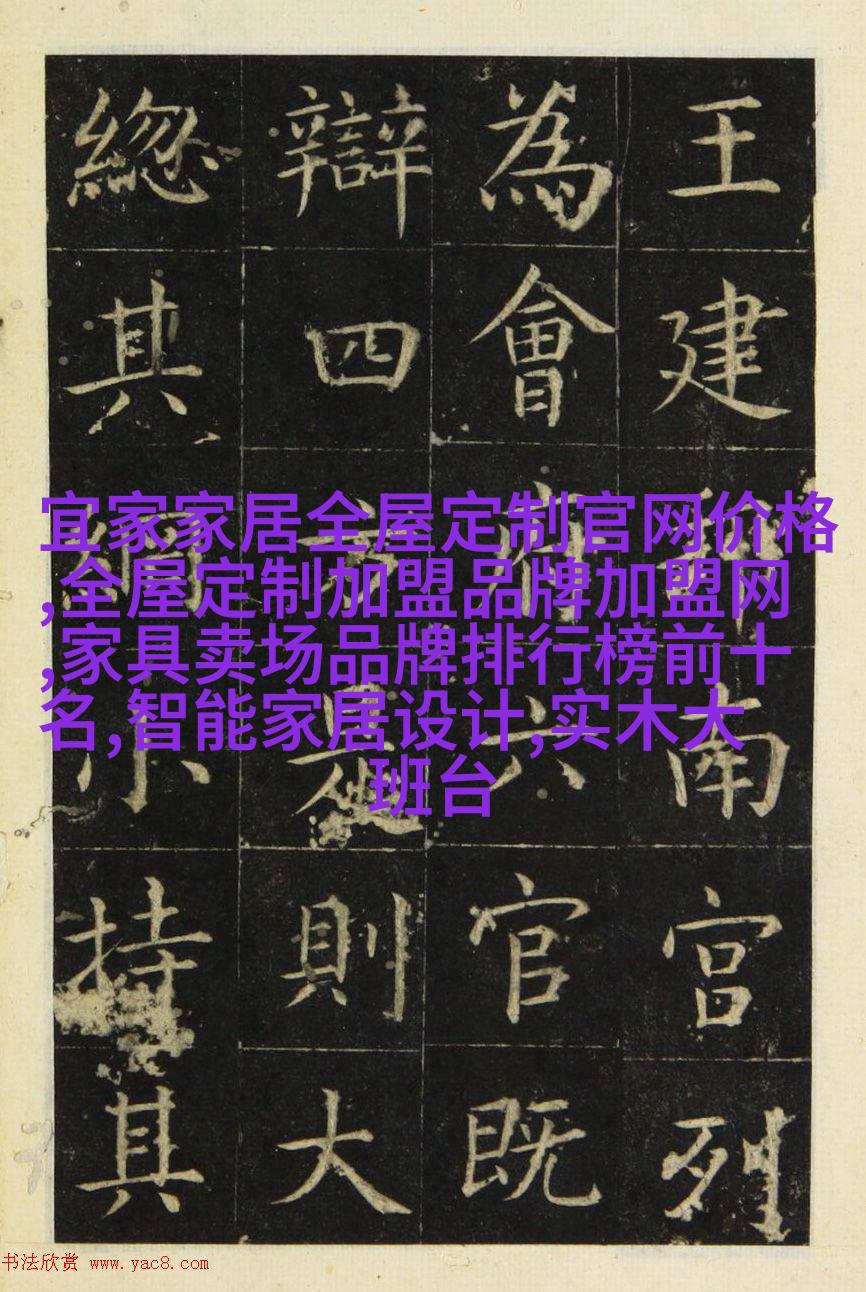 王建邦南宮列
為會府六官既
辯四方是則大
總其綱小持其
宜家家居全屋定制官网价格
,全屋定制加盟品牌加盟网
,家具卖场品牌排行榜前十
名,智能家居设计,实木大
班台
书法欣赏 www.yac8.com